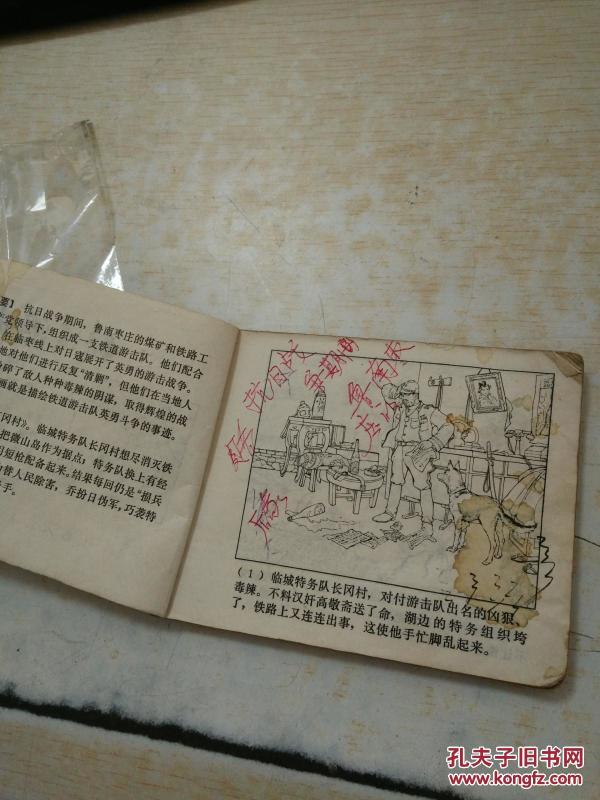 要】 抗日战争期间，鲁南枣庄的煤矿和铁路工
党领导下，组织成一支铁道游击队。他们配合
在临枣线上对日寇展开了英勇的游击战争。
地对他们进行反复“清剿”，但他们在当地人
碎了敌人种种毒辣的阴谋，取得辉煌的战
画就是描绘铁道游击队英勇斗争的事迹。
冈村》。临城特务队长冈村想尽消灭铁
把微山岛作为据点；特务队换上有经
短枪配备起来。结果每回仍是“损兵
替人民除害，乔扮日伪军，巧袭特
手。
抗日战
(1) 临城特务队长冈村，对付游击队出名的凶狠
毒辣。不料汉奸高敬斋送了命，湖边的特务组织垮
了，铁路上又连连出事，这使他手忙脚乱起来。
孔夫子旧书网
www.kongfz.com